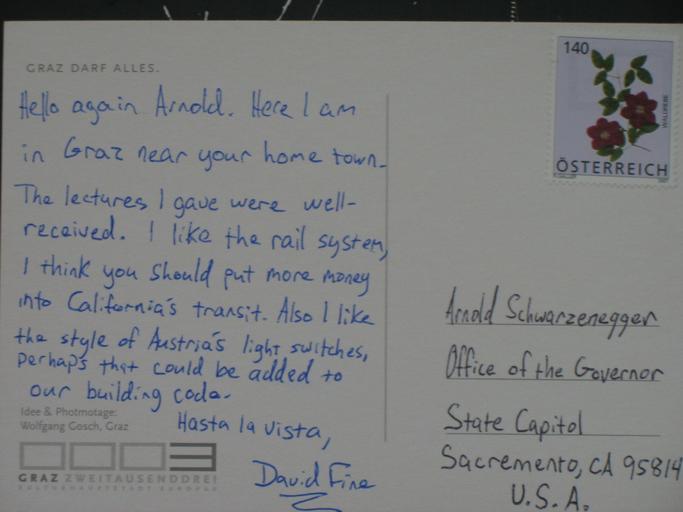 GRAZ DARF ALLES.
Hello again Arnold. Here I am
in Graz near your home town.
The lectures I gave were well-
received. I like the rail system,
I think you should put more money
into California's transit. Also I like
the style of Austria's light switches,
perhaps that could be added to
our building code.
Hasta la vista,
David Fine
Idee & Photmotage:
Wolfgang Gosch, Graz
GRAZ ZWEITAUSENDDREI
KULTURHAUPTSTADT EUROPAS
140
WALDREBE
ÖSTERREICH
Arnold Schwarzenegger
Office of the Governor
State Capitol
Sacremento, CA 95814
U.S.A.